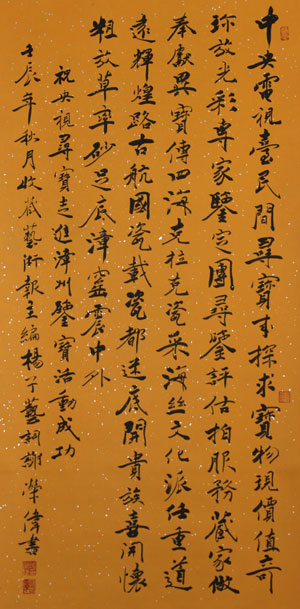 中央電視臺民間尋寶來探求寶物現價值奇
珍放光彩專家鑒定團尋鑒評估拍服務藏家做
奉獻異寶傳四海克拉克瓷采海絲文化派任重道
遠輝煌路古航國瓷載瓷都迷底開貴族喜開懷
粗放草率砂足底漳窑震中外
祝央視尋寶走進漳州鑒寶活動成功
壬辰年秋月收藏藝術報主編楊子藝詞謝榮偉書